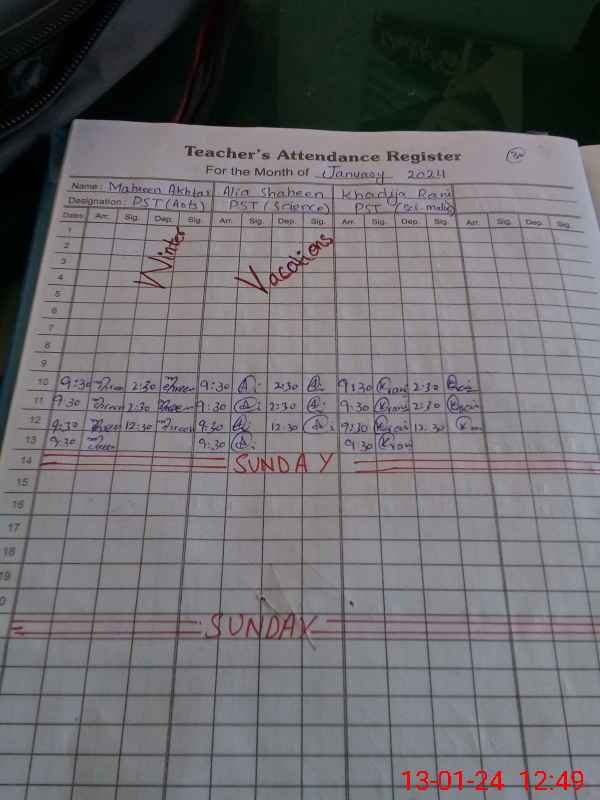 Teacher's Attendance Register
For the Month of January 2024
Name: Mahreen Akhtar Alia Shaheen Khadija Rani
Designation: PST (Arts) PST (Science) PST (Sci. math)
Dates Arr. Sig. Dep. Sig. Arr. Sig. Dep. Sig. Arr. Sig. Dep. Sig. Arr. Sig. Dep. Sig.
1
2
3
4
5
6
7
8
9
Winter Vacations
10 9:30 2:30 9:30 2:30 9:30 2:30
11 9:30 2:30 9:30 2:30 9:30 2:30
12 9:30 12:30 9:30 12:30 9:30 12:30
13 9:30 9:30 9:30
14 SUNDAY
15
16
17
18
19
0
SUNDAY
13-01-24 12:49